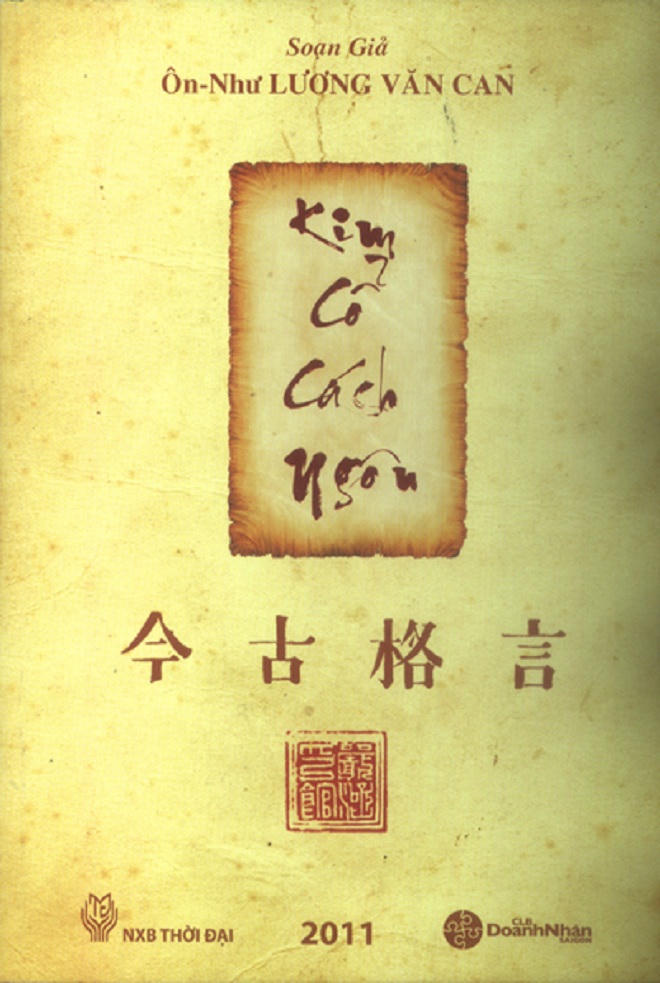 Soạn Giả
Ôn-Như LƯƠNG VĂN CAN
Kim
Cổ
Cách
Ngôn
今古格言
NXB THỜI ĐẠI
2011
CLB
DoanhNhân
SAIGON